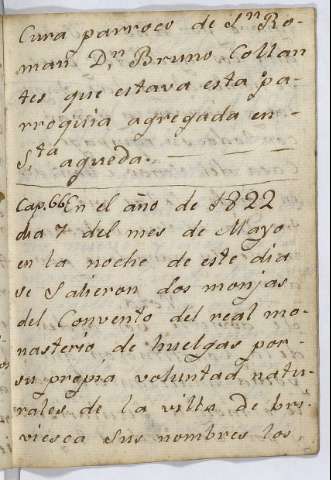 Cura parroco de Sn Ro-
man Dn Bruno Collan
tes que estava esta pa-
rroquia agregada en-
Sta agueda.
Cap. 66 En el año de 1822
dia 7 del mes de Mayo
en la noche de este dia
se salieron dos monjas
del Convento del real mo-
nasterio de huelgas por-
su propia voluntad natu-
rales de la villa de bri-
viesca sus nombres los